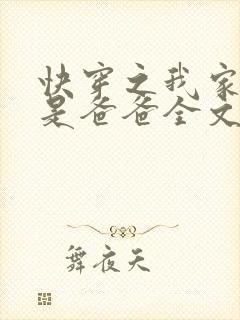 快穿之我家
是爸爸全文
舞夜天